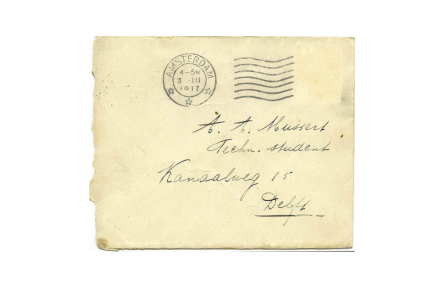 AMSTERDAM
4-5N
3 III
1917
A. A. Mussert
Techn. student
Kanaalweg 15
Delft